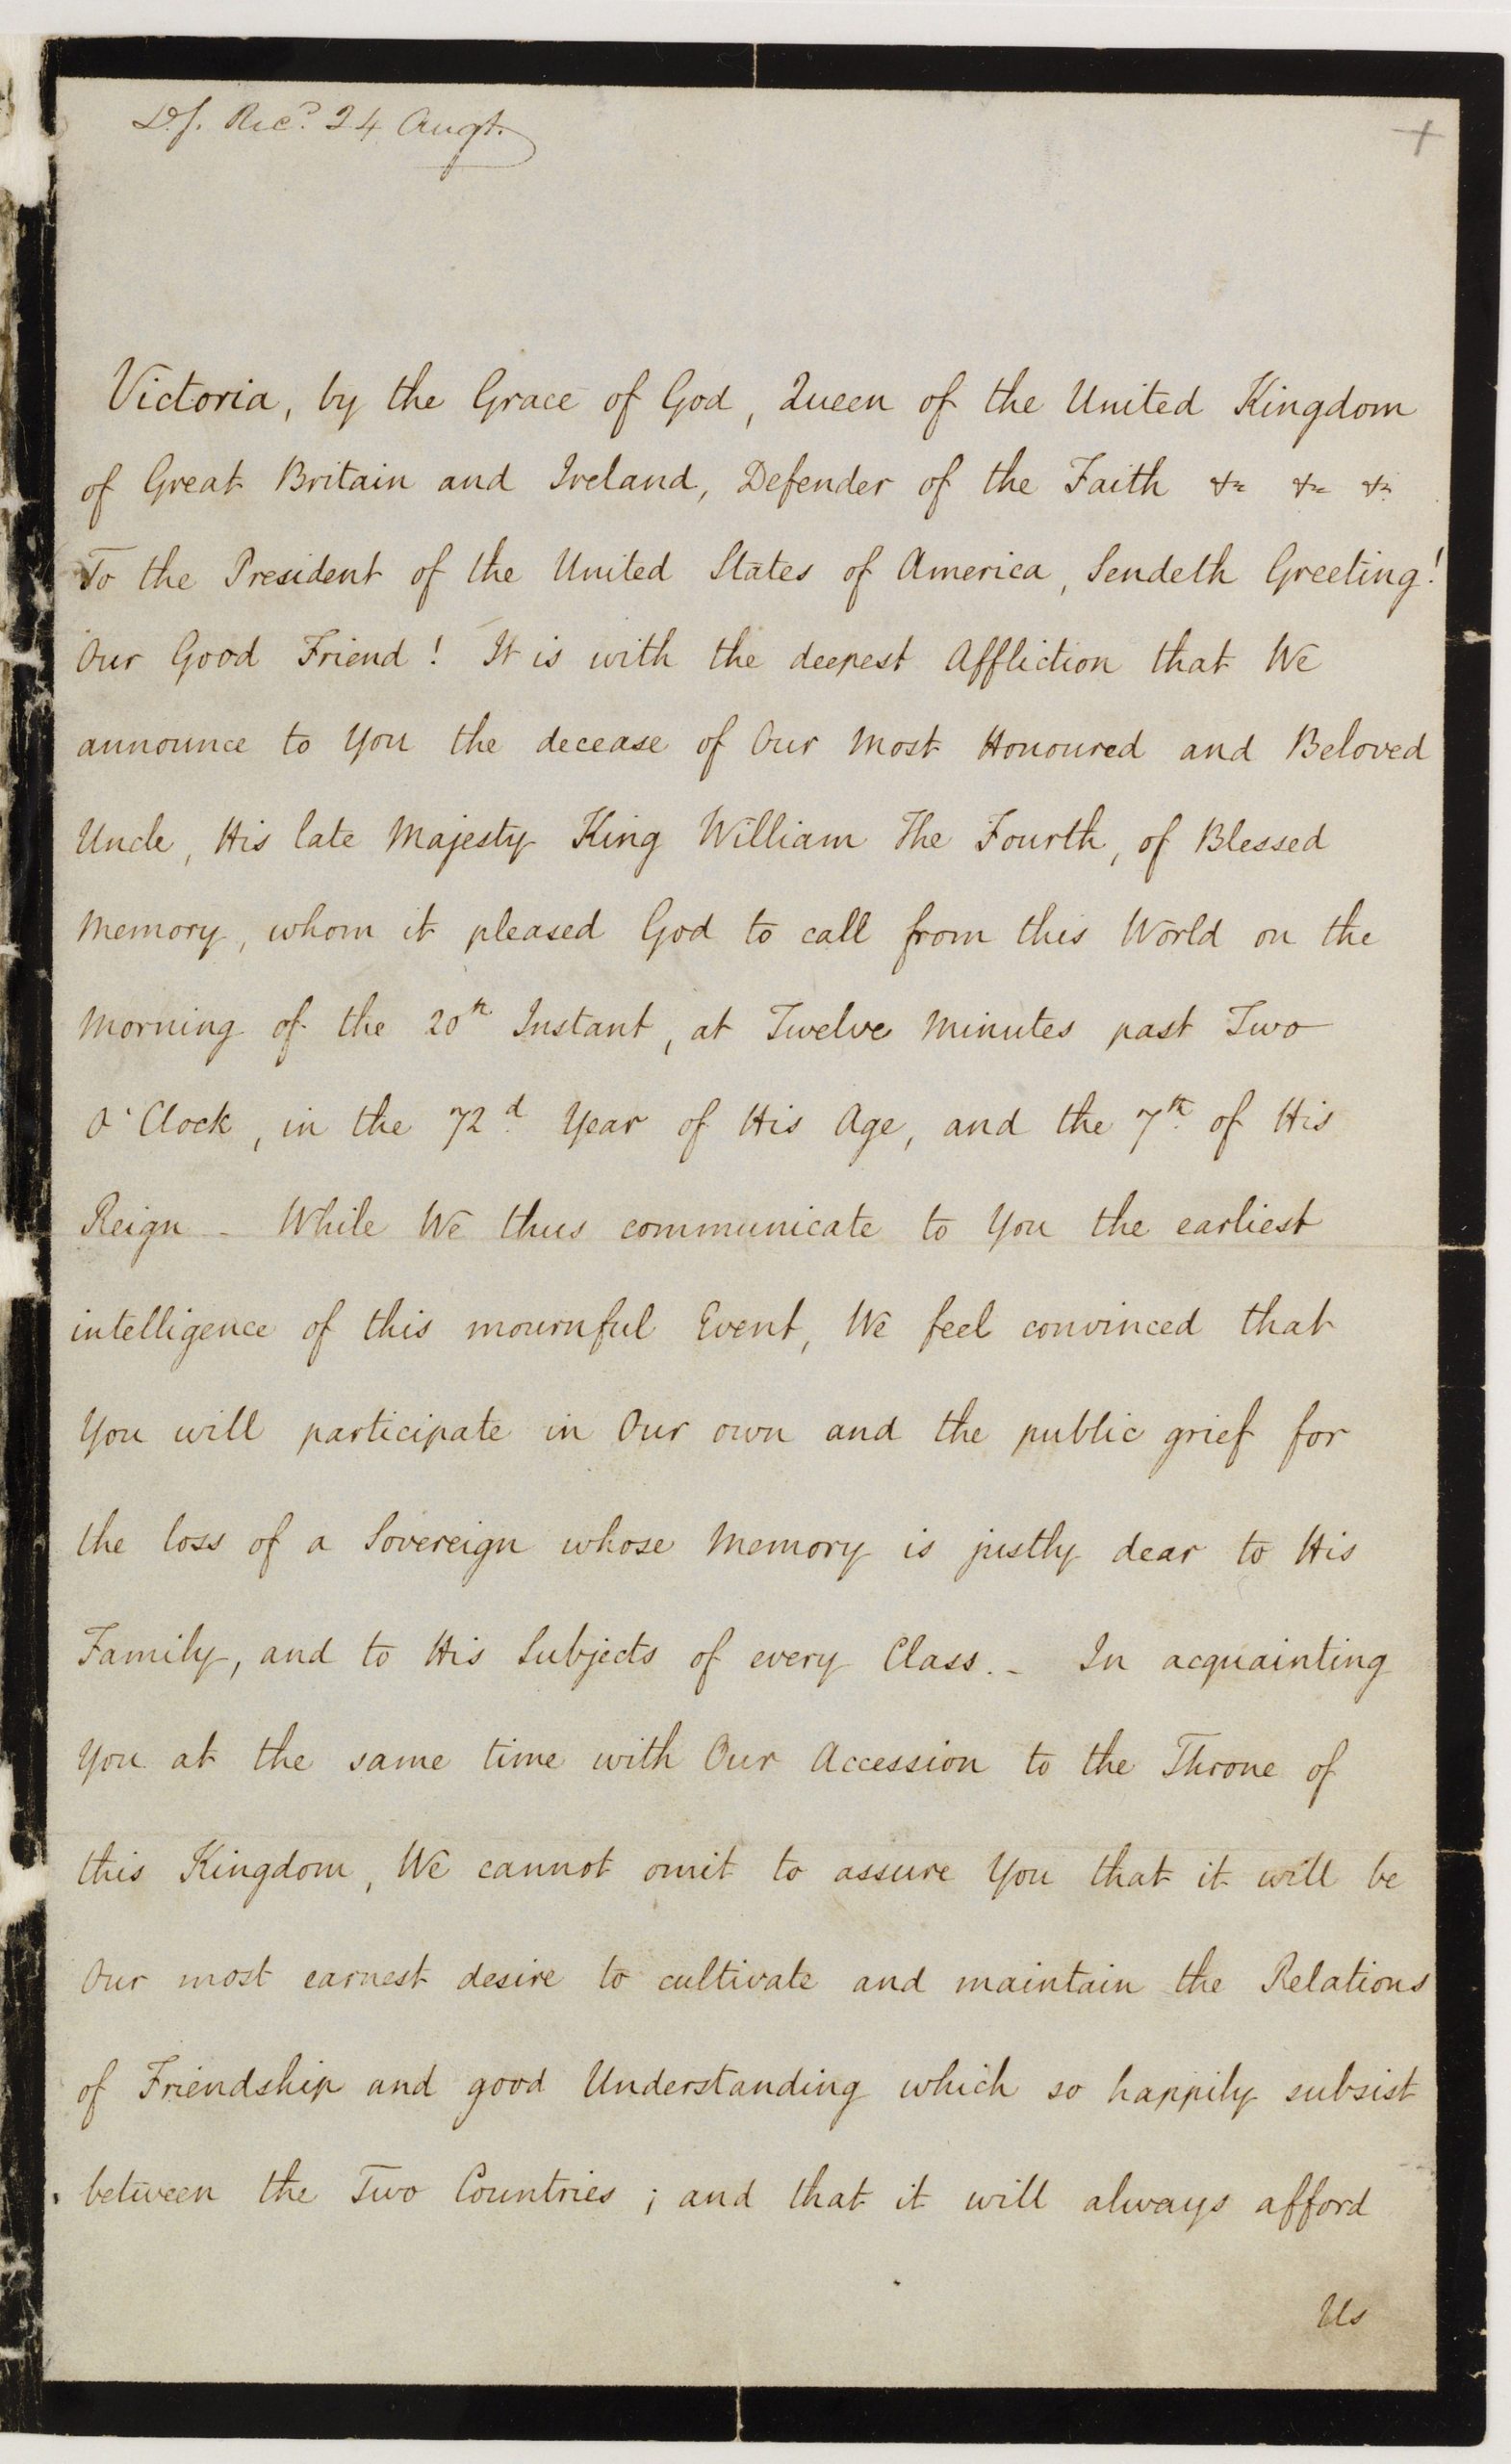 D.S. Recd. 24 Augt.
Victoria, by the Grace of God, Queen of the United Kingdom
of Great Britain and Ireland, Defender of the Faith &c &c &c
To the President of the United States of America, Sendeth Greeting!
Our Good Friend! It is with the deepest Affliction that We
announce to You the decease of Our Most Honoured and Beloved
Uncle, His late Majesty King William The Fourth, of Blessed
Memory, whom it pleased God to call from this World on the
Morning of the 20th Instant, at Twelve Minutes past Two
O'Clock, in the 72d. Year of His Age, and the 7th. of His
Reign - While We thus communicate to You the earliest
intelligence of this mournful Event, We feel convinced that
You will participate in Our own and the public grief for
the loss of a Sovereign whose Memory is justly dear to His
Family, and to His Subjects of every Class. - In acquainting
You at the same time with Our Accession to the Throne of
this Kingdom, We cannot omit to assure You that it will be
Our most earnest desire to cultivate and maintain the Relations
of Friendship and good Understanding which so happily subsist
between the Two Countries; and that it will always afford
Us